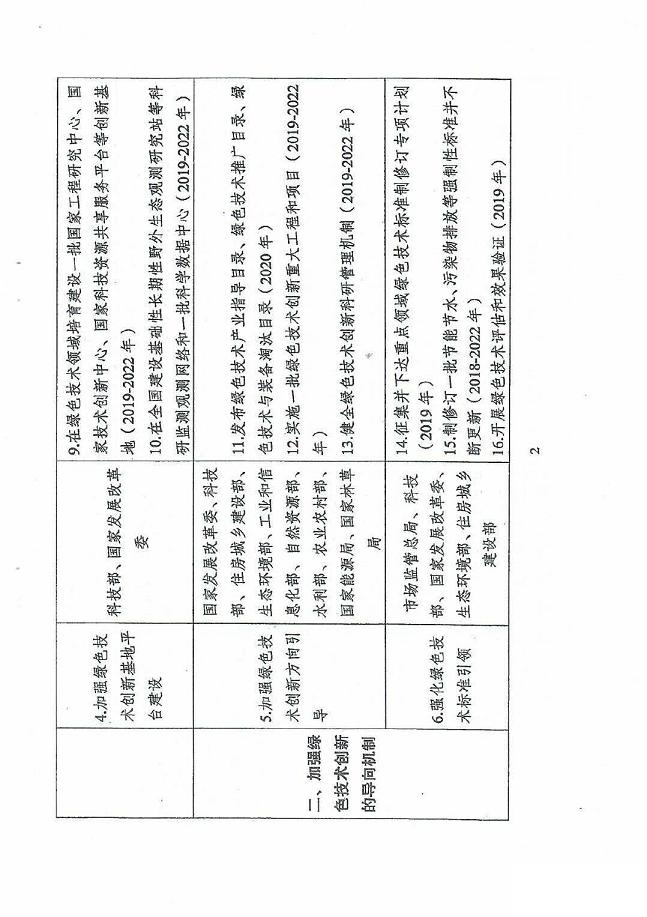 4.加强绿色技
术创新基地平
台建设
科技部、国家发展改革
委
9.在绿色技术领域培育建设一批国家工程研究中心、国
家技术创新中心、国家科技资源共享服务平台等创新基
地（2019-2022年）
10.在全国建设基础性长期性野外生态观测研究站等科
研监测观测网络和一批科学数据中心（2019-2022年）
二、加强绿
色技术创新
的导向机制
5.加强绿色技
术创新方向引
导
国家发展改革委、科技
部、住房城乡建设部、
生态环境部、工业和信
息化部、自然资源部、
水利部、农业农村部、
国家能源局、国家林草
局
11.发布绿色技术产业指导目录、绿色技术推广目录、绿
色技术与装备淘汰目录（2020年）
12.实施一批绿色技术创新重大工程和项目（2019-2022
年）
13.健全绿色技术创新科研管理机制（2019-2022年）
6.强化绿色技
术标准引领
市场监管总局、科技
部、国家发展改革委、
生态环境部、住房城乡
建设部
14.征集并下达重点领域绿色技术标准制修订专项计划
（2019年）
15.制修订一批节能节水、污染物排放等强制性标准并不
断更新（2018-2022年）
16.开展绿色技术评估和效果验证（2019年）
2